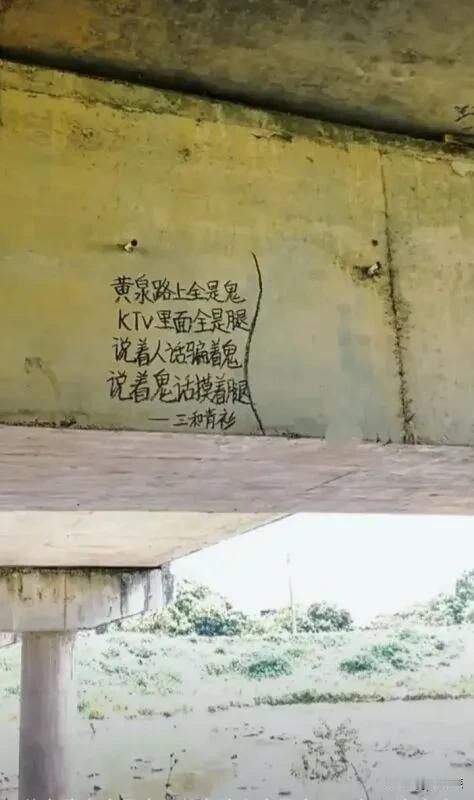 黄泉路上全是鬼
KTV里面全是腿
说着人话骗着鬼
说着鬼话摸着腿
——三和青衫